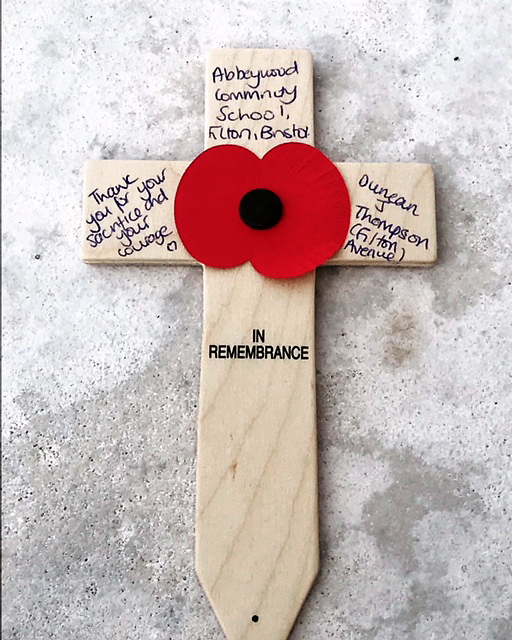 Abbeywood
Community
School,
Filton, Bristol
Thank
you for your
sacrifice and
your
courage ♡
Duncan
Thompson
(Filton
Avenue)
IN
REMEMBRANCE